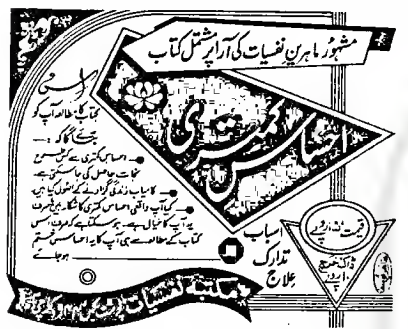 مشہور ماہرین نفسیات کی آرا پر مشتمل کتاب
احساس کمتری
اس
کتاب کا مطالعہ آپ کو
بتائے گا کہ :—
احساس کمتری سے کس طرح
نجات حاصل کی جا سکتی ہے
کامیاب زندگی گزارنے کے اصول کیا ہیں
کیا آپ واقعی احساس کمتری کا شکار ہیں یا صرف
یہ آپ کا خیال ہے۔ ہو سکتا ہے کہ صرف اسی
کتاب کے مطالعہ سے ہی آپ کا یہ احساس ختم
ہو جائے
اسباب
تدارک
علاج
قیمت
روپے
ڈاک خرچ
روپے
مکتبہ نفسیات پوسٹ بکس کراچی